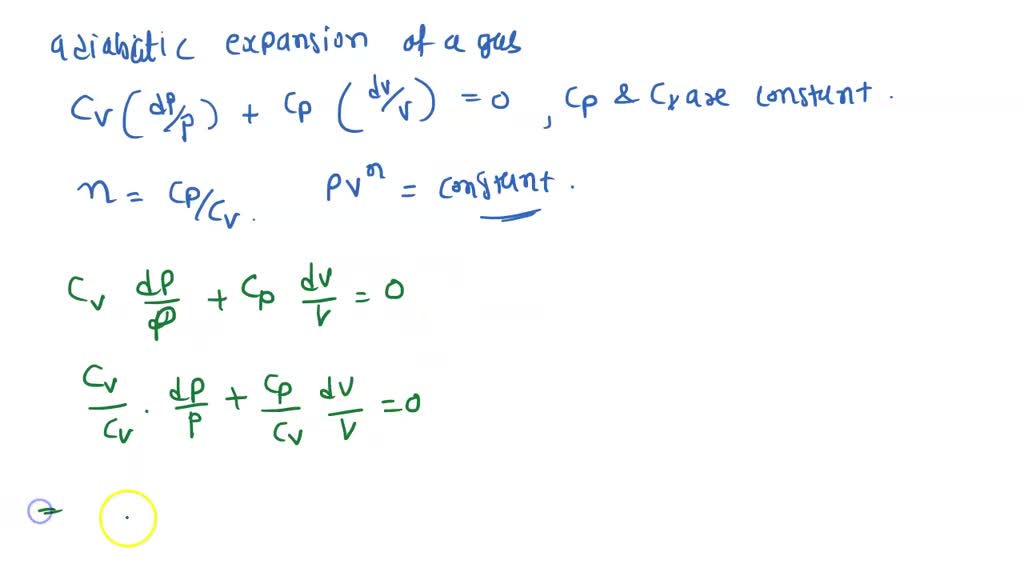 adiabatic expansion of a gas
Cv (dp/p) + Cp (dv/v) = 0 , Cp & Cv are constant .
n = Cp/Cv . PVⁿ = constant .
Cv dP/P + Cp dV/V = 0
Cv/Cv . dP/P + Cp/Cv dV/V = 0
=